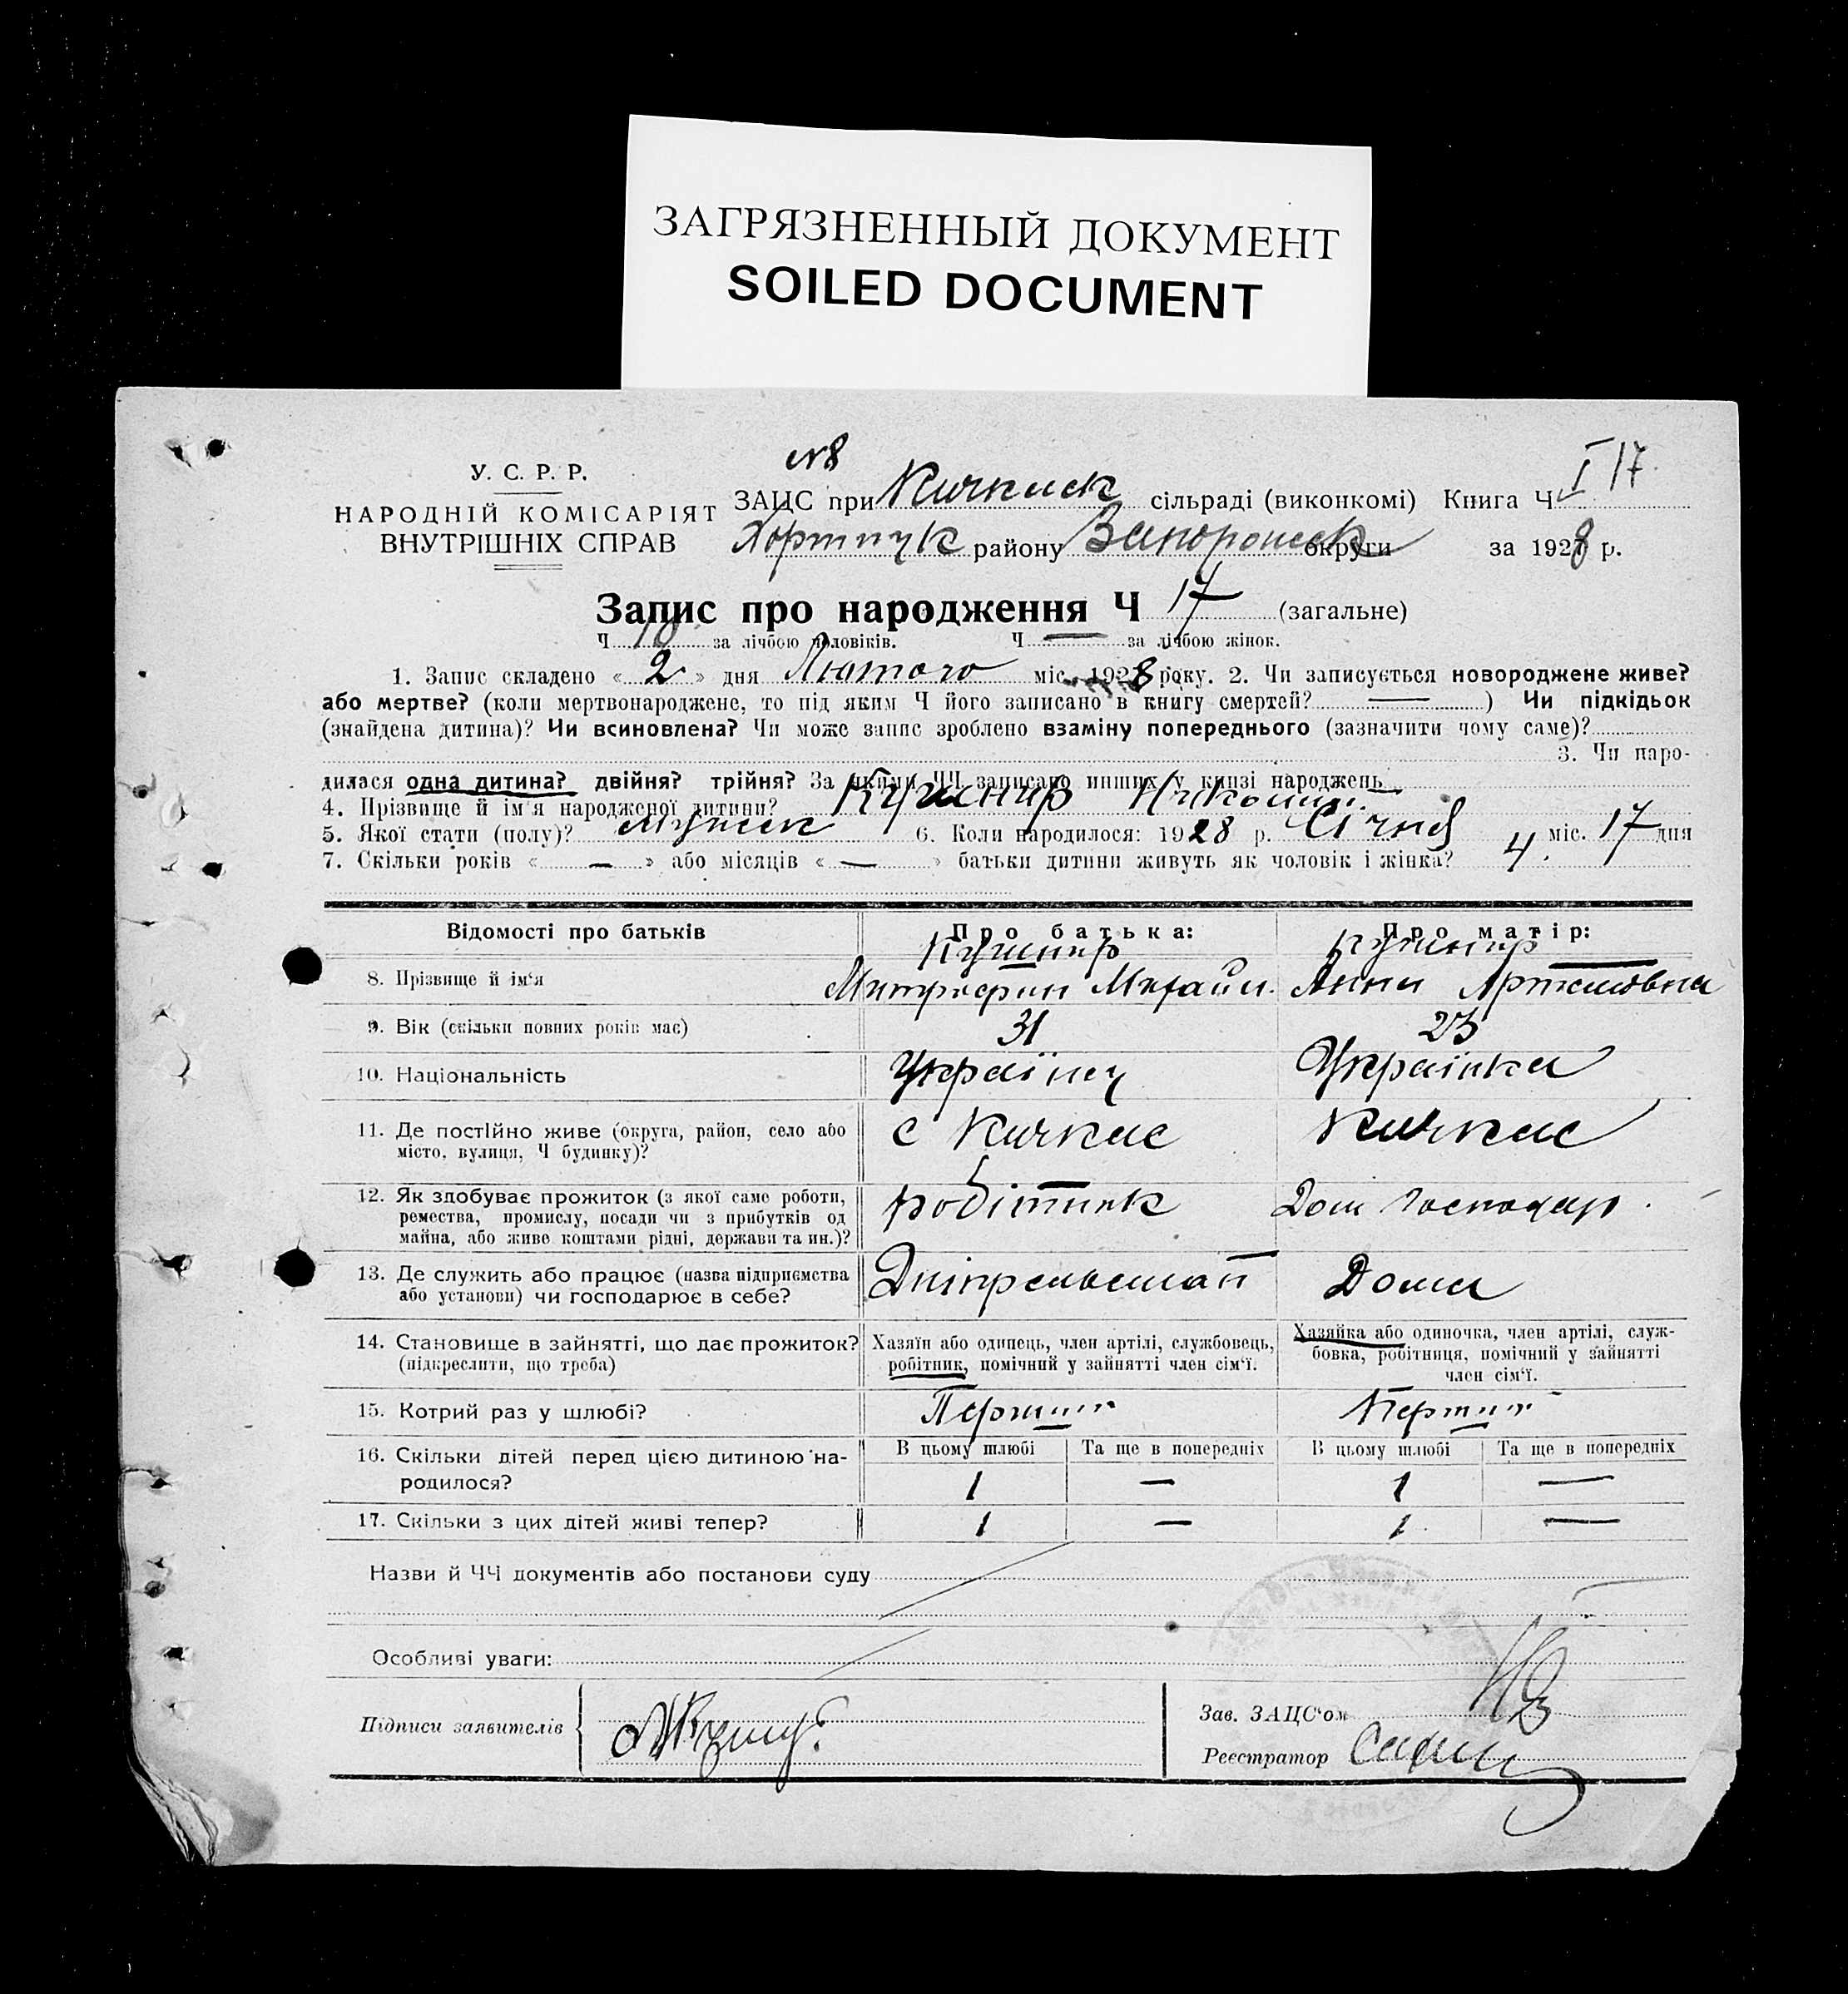 ЗАГРЯЗНЕННЫЙ ДОКУМЕНТ
SOILED DOCUMENT
№8
I 17
У. С. Р. Р.
НАРОДНІЙ КОМІСАРІЯТ
ВНУТРІШНІХ СПРАВ
ЗАЦС при Кичкаск сільраді (виконкомі) Книга Ч
Хортицьк району Запорожск округи за 1928 р.
Запис про народження Ч 17 (загальне)
Ч 10 за лічбою чоловіків. Ч — за лічбою жінок.
1. Запис складено « 2 » дня Лютого міс. 1928 року. 2. Чи записується новороджене живе?
або мертве? (коли мертвонароджене, то під яким Ч його записано в книгу смертей? — ) Чи підкідьок
(знайдена дитина)? Чи всиновлена? Чи може запис зроблено взаміну попереднього (зазначити чому саме)?
3. Чи наро-
дилася одна дитина? двійня? трійня? За якими ЧЧ записано инших у книзі народжень
4. Прізвище й ім'я народженої дитини? Кушнир Николай
5. Якої стати (полу)? Мужск 6. Коли народилося: 1928 р. Січня міс. 17 дня
7. Скільки років « — » або місяців « — » батьки дитини живуть як чоловік і жінка? 4.
Відомості про батьків Про батька: Про матір:
Кушнир Кушнир
8. Прізвище й ім'я Митрофан Михайл. Анна Артемовна
9. Вік (скільки повних років має) 31 23
10. Національність Українец Українка
11. Де постійно живе (округа, район, село або
місто, вулиця, Ч будинку)? с Кичкас Кичкас
12. Як здобуває прожиток (з якої саме роботи,
ремества, промислу, посади чи з прибутків од
майна, або живе коштами рідні, держави та ин.)? робітник Дом Господар.
13. Де служить або працює (назва підприємства
або установи) чи господарює в себе? Дніпрельстан Дома
14. Становище в зайнятті, що дає прожиток?
(підкреслити, що треба)
Хазяїн або одинець, член артілі, службовець,
робітник, помічний у зайнятті член сім'ї.
Хазяйка або одиночка, член артілі, служ-
бовка, робітниця, помічний у зайнятті
член сім'ї.
15. Котрий раз у шлюбі? Перший Перший
16. Скільки дітей перед цією дитиною на-
родилося?
В цьому шлюбі Та ще в попередніх В цьому шлюбі Та ще в попередніх
1 — 1 —
17. Скільки з цих дітей живі тепер? 1 — 1 —
Назви й ЧЧ документів або постанови суду
Особливі уваги:
Підписи заявителів
Зав. ЗАЦС'ом
Реєстратор